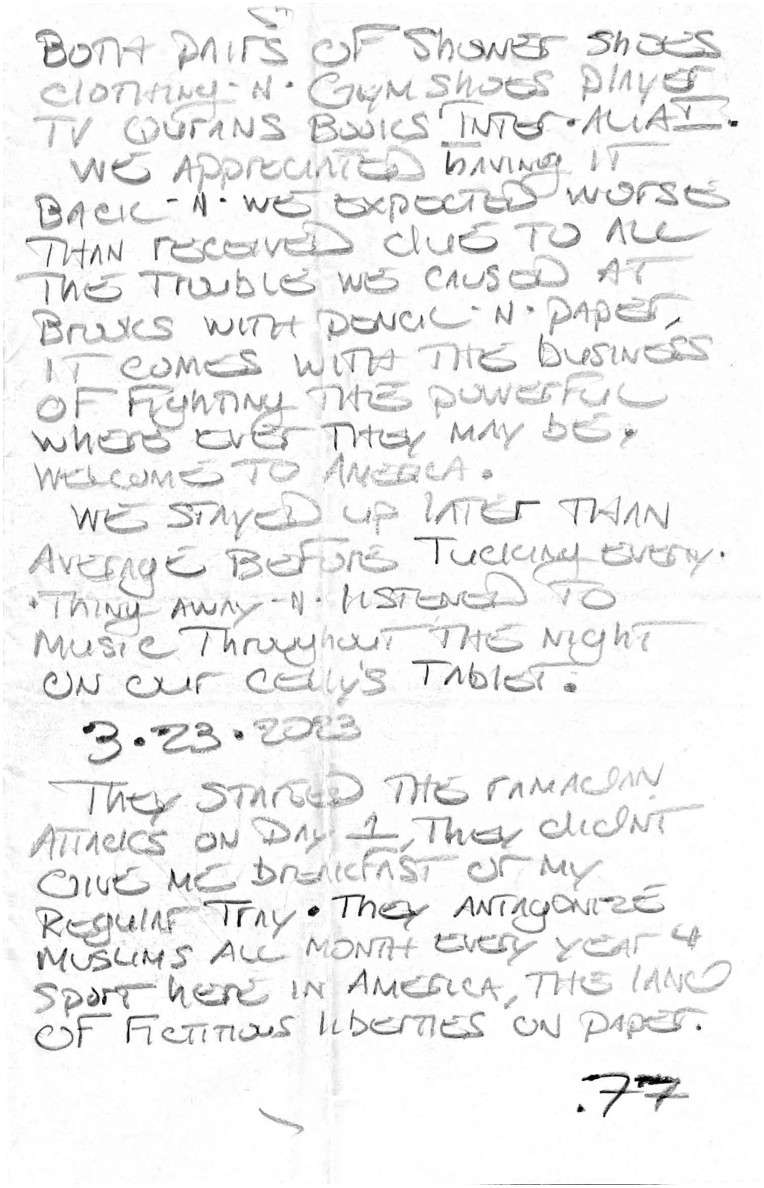 BOTH PAIRS OF SHOWER SHOES
CLOTHING-N-GYM SHOES PLAYER
TV QURANS BOOKS "INTER-ALIA".
WE APPRECIATED HAVING IT
BACK-N-WE EXPECTED WORSE
THAN RECEIVED DUE TO ALL
THE TROUBLE WE CAUSED AT
BROOKS WITH PENCIL-N-PAPER,
IT COMES WITH THE BUSINESS
OF FIGHTING THE POWERFUL
WHERE EVER THEY MAY BE,
WELCOME TO AMERICA.
WE STAYED UP LATER THAN
AVERAGE BEFORE TUCKING EVERY-
-THING AWAY-N-LISTENED TO
MUSIC THROUGHOUT THE NIGHT
ON OUR CELLY'S TABLET.
3.23.2023
THEY STARTED THE RAMADAN
ATTACKS ON DAY 1, THEY DIDNT
GIVE ME BREAKFAST OR MY
REGULAR TRAY. THEY ANTAGONIZE
MUSLIMS ALL MONTH EVERY YEAR 4
SPORT HERE IN AMERICA, THE LAND
OF FICTITIOUS LIBERTIES ON PAPER.
.77